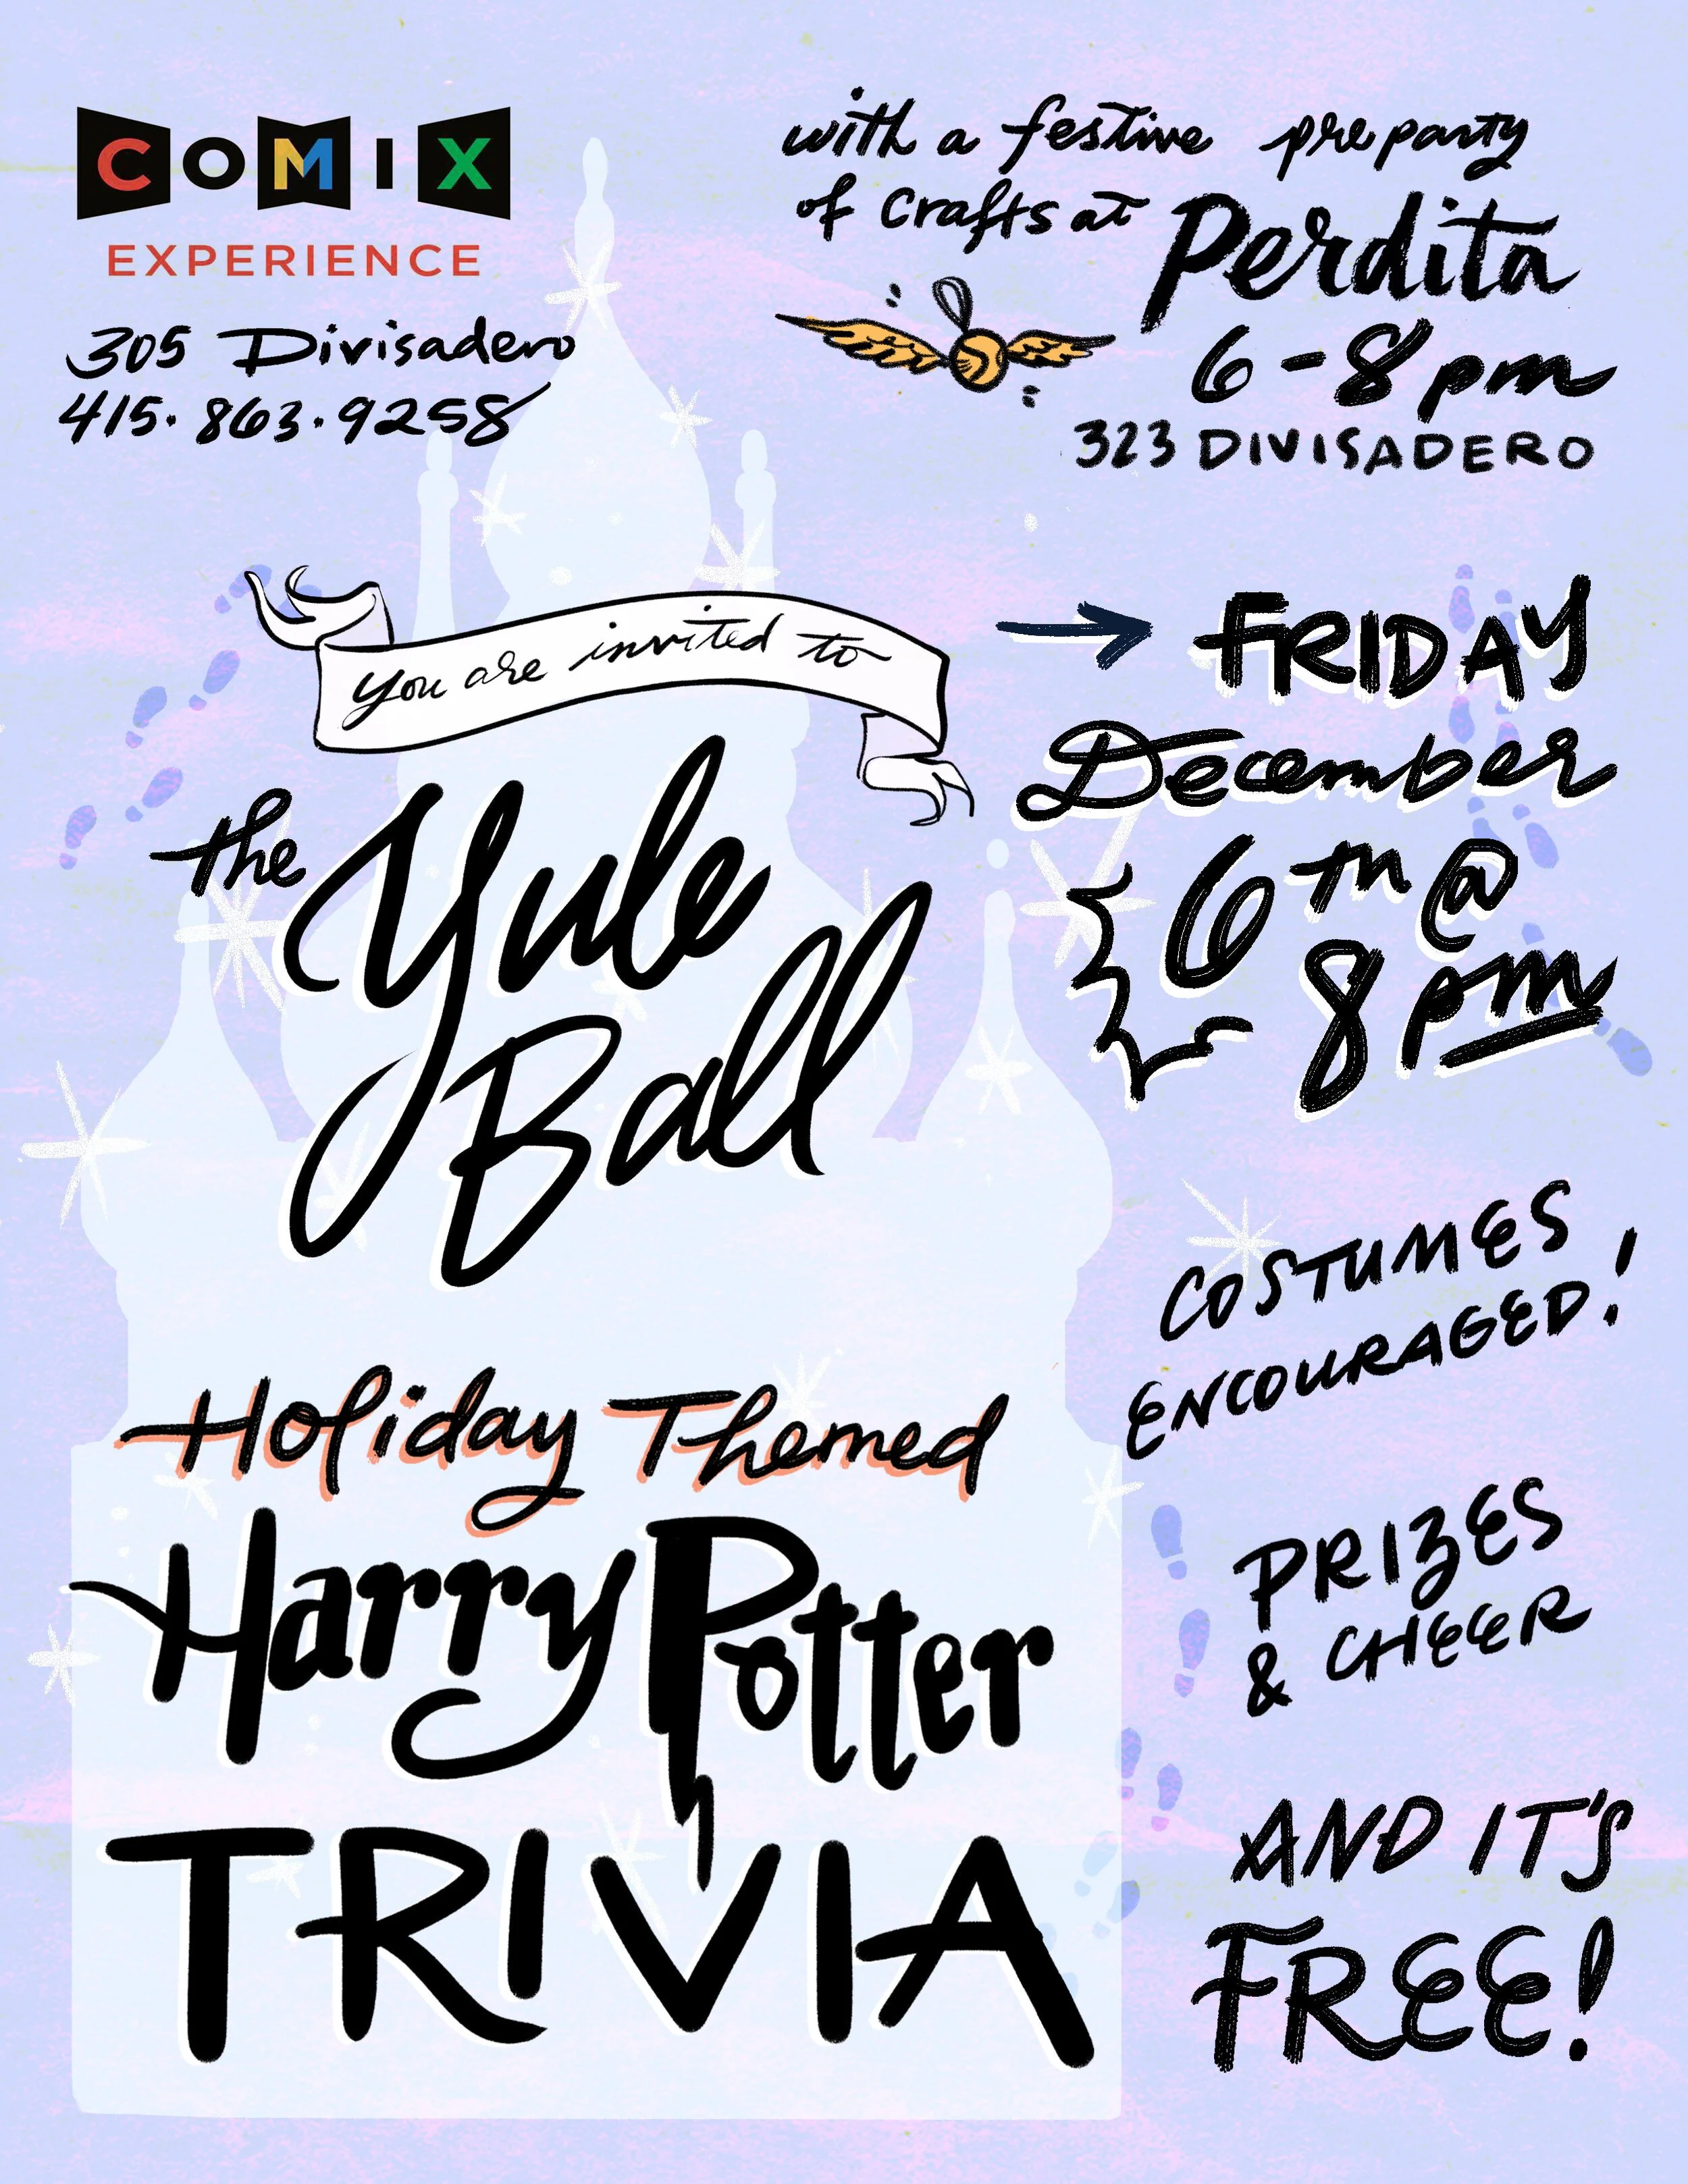 COMIX
EXPERIENCE
305 Divisadero
415.863.9258
with a festive pre party
of crafts at Perdita
6-8pm
323 DIVISADERO
you are invited to
the Yule
Ball
FRIDAY
December
6th @
8pm
COSTUMES
ENCOURAGED!
Holiday Themed
Harry Potter
TRIVIA
PRIZES
& CHEER
AND IT'S
FREE!